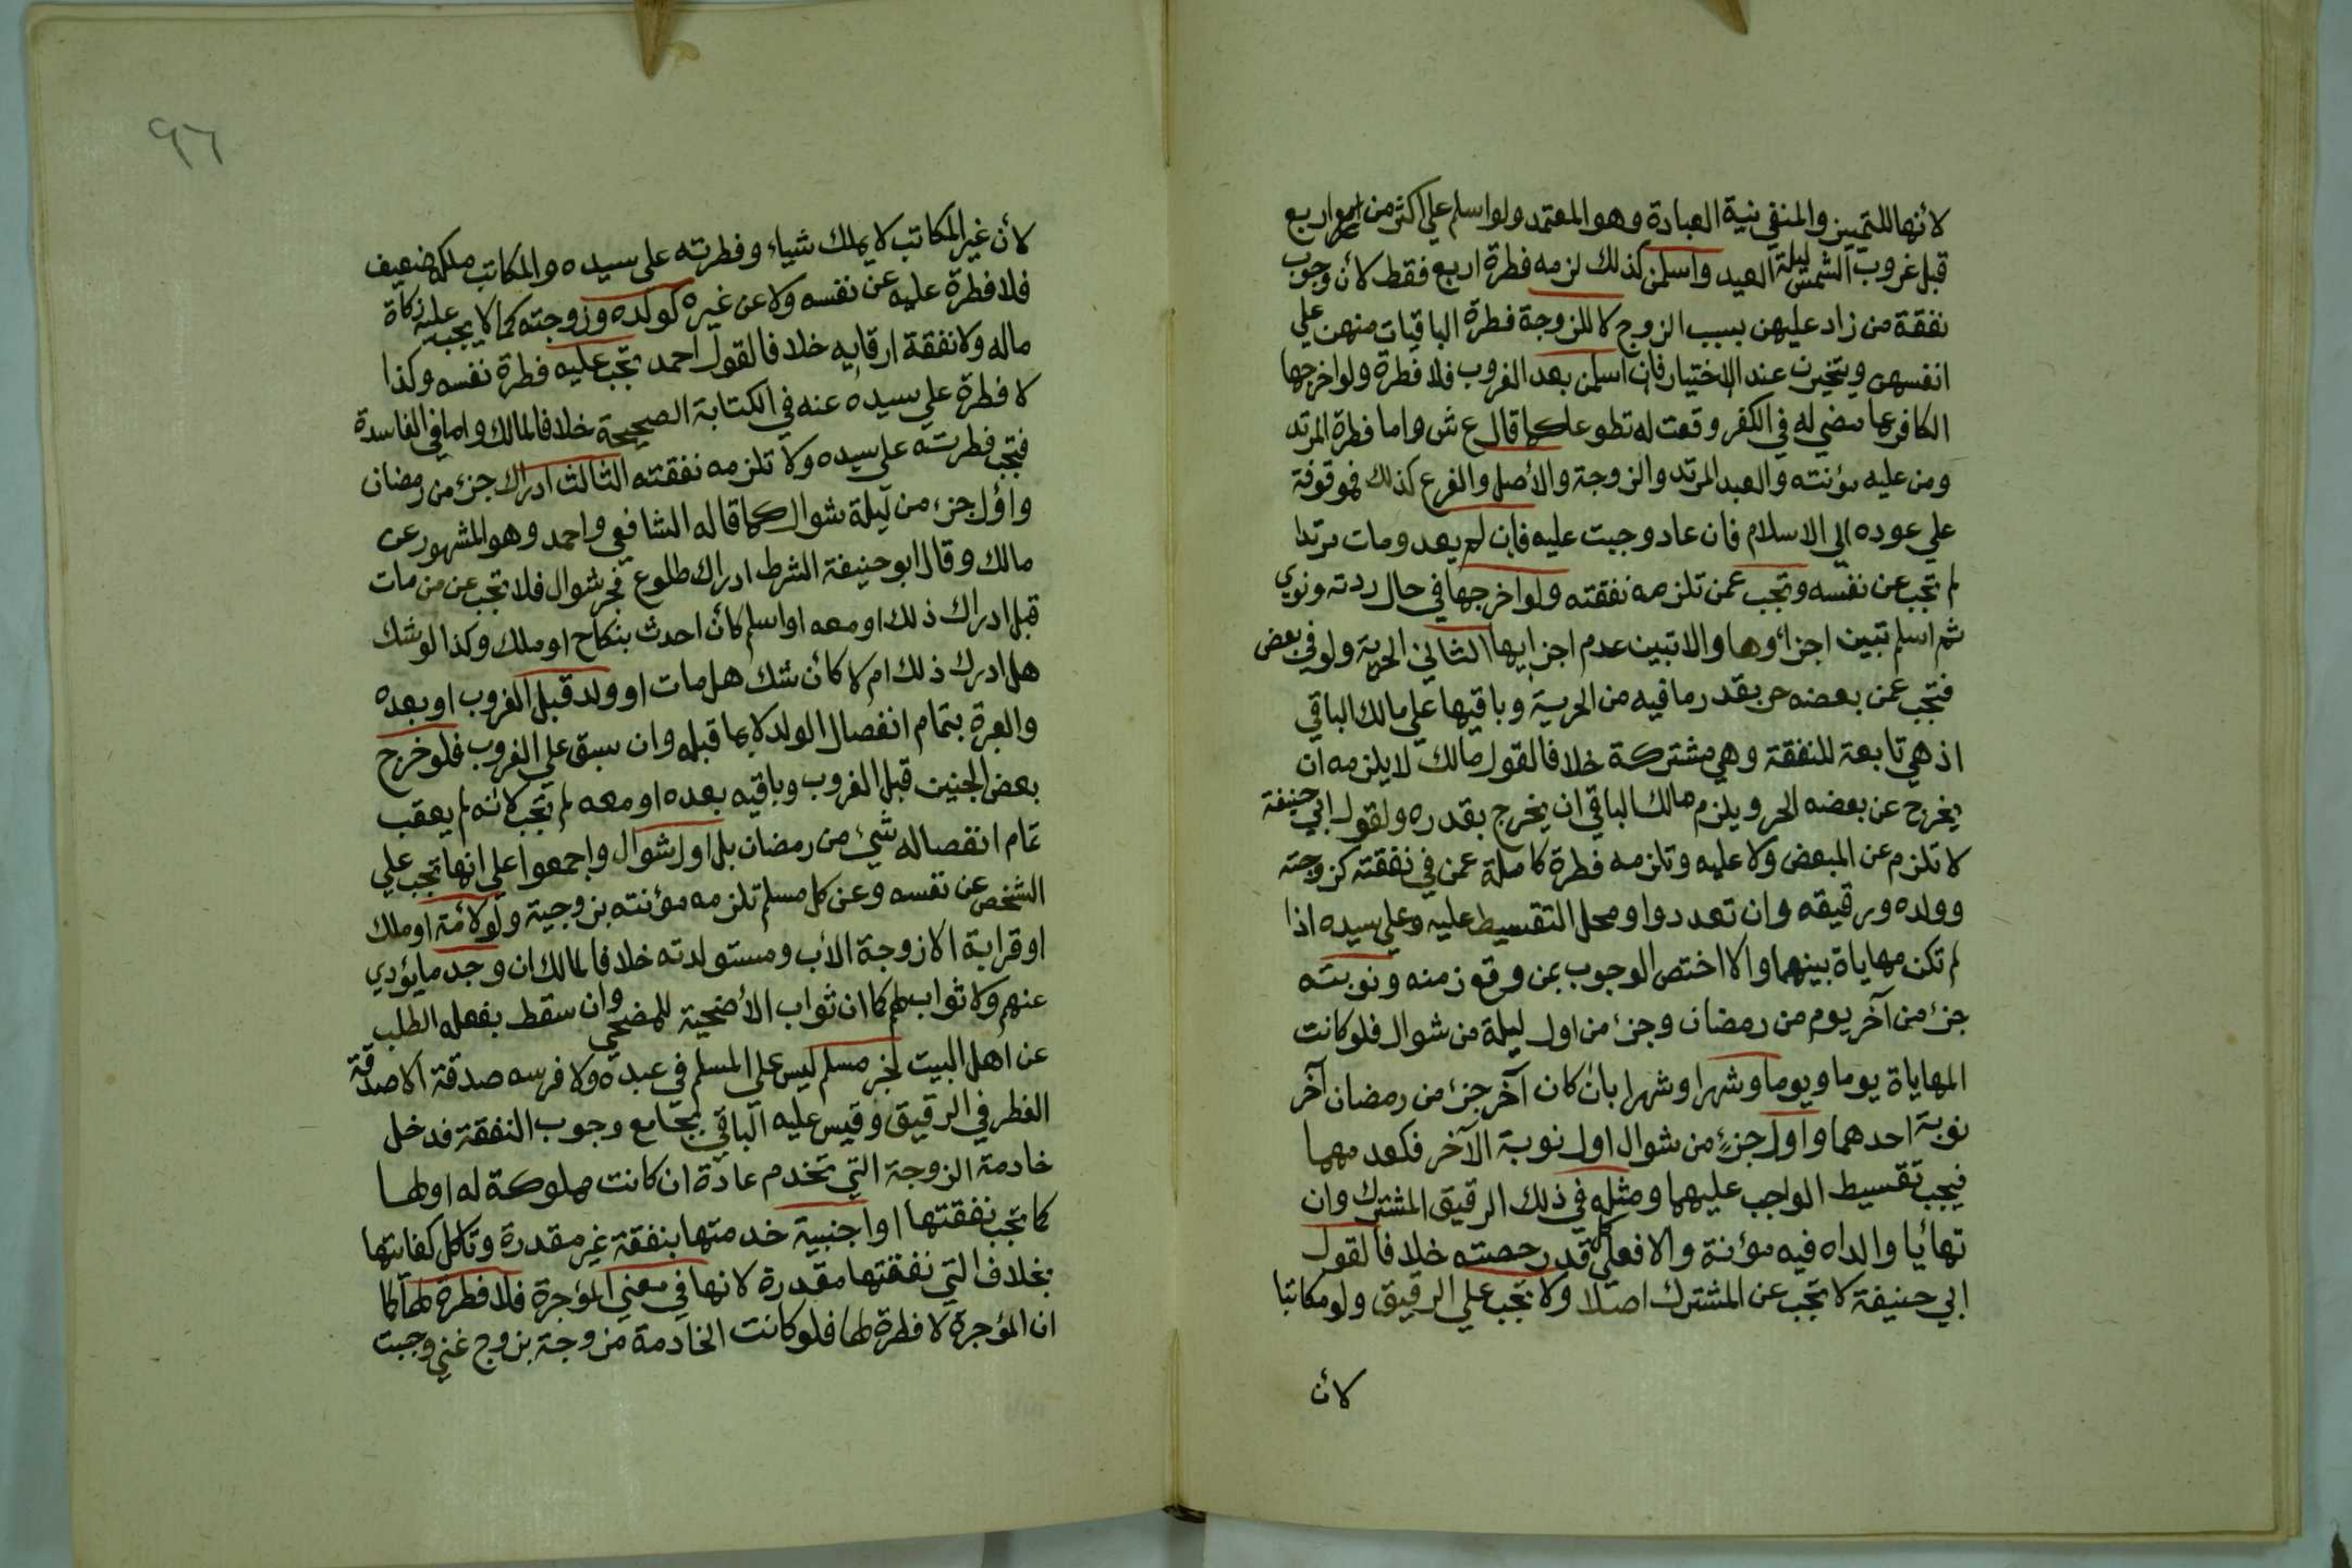 لأنها للتمييز والمنفي نية العبادة وهو المعتمد ولو اسلم على اكثر من اربع
قبل غروب الشمس ليلة العيد واسلمن كذلك لزمه فطرة اربع فقط لأن وجوب
نفقة من زاد عليهن بسبب الزوج لا للزوجة فطرة الباقيات منهن علي
انفسهن ويتخيرن عند الاختيار فان اسلمن بعد الغروب فلا فطرة ولو اخرجها
الكافر عما مضي له في الكفر وقعت له تطوعا كما قال ع ش واما فطرة المرتد
ومن عليه مؤنته والعبد المرتد والزوجة والأصل والفرع كذلك فموقوفة
علي عوده الي الاسلام فان عاد وجبت عليه فان لم يعد ومات مرتدا
لم تجب عن نفسه وتجب عمن تلزمه نفقته ولو اخرجها في حال ردته ونوي
ثم اسلم تبين اجزاؤها والا تبين عدم اجزايها الثاني الحرية ولو في بعض
فتجب عمن بعضه حر بقدر ما فيه من الحرية وباقيها علي مالك الباقي
اذ هي تابعة للنفقة وهي مشتركة خلافا لقول مالك لا يلزمه ان
يخرج عن بعضه الحر ويلزم مالك الباقي ان يخرج بقدره ولقول ابي حنيفة
لا تلزم عن المبعض ولا عليه وتلزمه فطرة كاملة عمن في نفقته كزوجته
وولده ورقيقه وان تعددوا ومحل التقسيط عليه وعلي سيده اذا
لم تكن مهاياة بينهما والا اختص الوجوب بمن وقع زمنه ونوبته
جزء من آخر يوم من رمضان وجزء من اول ليلة من شوال فلو كانت
المهاياة يوما ويوما وشهرا وشهرا بان كان آخر جزء من رمضان آخر
نوبة احدهما واول جزء من شوال اول نوبة الآخر فكعدمهما
فيجب تقسيط الواجب عليهما ومثله في ذلك الرقيق المشترك وان
تهائيا والداه فيه مؤنة والا فعلي كل قدر حصته خلافا لقول
ابي حنيفة لا تجب عن المشترك اصلا ولا تجب علي الرقيق ولو مكاتبا
لأن
٩٦
لأن غير المكاتب لا يملك شياء وفطرته على سيده والمكاتب ملكه ضعيف
فلا فطرة عليه عن نفسه ولا عن غيره كولده وزوجته كما لا يجب عليه زكاة
ماله ولا نفقة ارقايه خلافا لقول احمد تجب عليه فطرة نفسه وكذا
لا فطرة علي سيده عنه في الكتابة الصحيحة خلافا لمالك واما في الفاسدة
فتجب فطرته على سيده ولا تلزمه نفقته الثالث ادراك جزء من رمضان
واول جزء من ليلة شوال كما قاله الشافعي واحمد وهو المشهور عن
مالك وقال ابو حنيفة الشرط ادراك طلوع فجر شوال فلا تجب عن من مات
قبل ادراك ذلك او معه او اسلم كأن احدث بنكاح او ملك وكذا لو شك
هل ادرك ذلك ام لا كأن شك هل مات او ولد قبل الغروب او بعده
والعبرة بتمام انفصال الولد لا بما قبله وان سبق علي الغروب فلو خرج
بعض الجنين قبل الغروب وباقيه بعده او معه لم تجب لأنه لم يعقب
تمام انفصاله شئ من رمضان بل اول شوال واجمعوا علي انها تجب علي
الشخص عن نفسه وعن كل مسلم تلزمه مؤنته بزوجية ولو لأمة او ملك
او قرابة الا زوجة الأب ومستولدته خلافا لمالك ان وجد ما يؤدي
عنهم ولا ثواب لهم كما ان ثواب الأضحية للمضحي وان سقط بفعله الطلب
عن اهل البيت لخبر مسلم ليس على المسلم في عبده ولا فرسه صدقة الا صدقة
الفطر في الرقيق وقيس عليه الباقي بجامع وجوب النفقة فدخل
خادمة الزوجة التي تخدم عادة ان كانت مملوكة له او لها
كما تجب نفقتها او اجنبية خدمتها بنفقة غير مقدرة وتأكل كفايتها
بخلاف التي نفقتها مقدرة لانها في معني المؤجرة فلا فطرة لها كما
ان المؤجرة لا فطرة لها فلو كانت الخادمة مزوجة بزوج غني وجبت